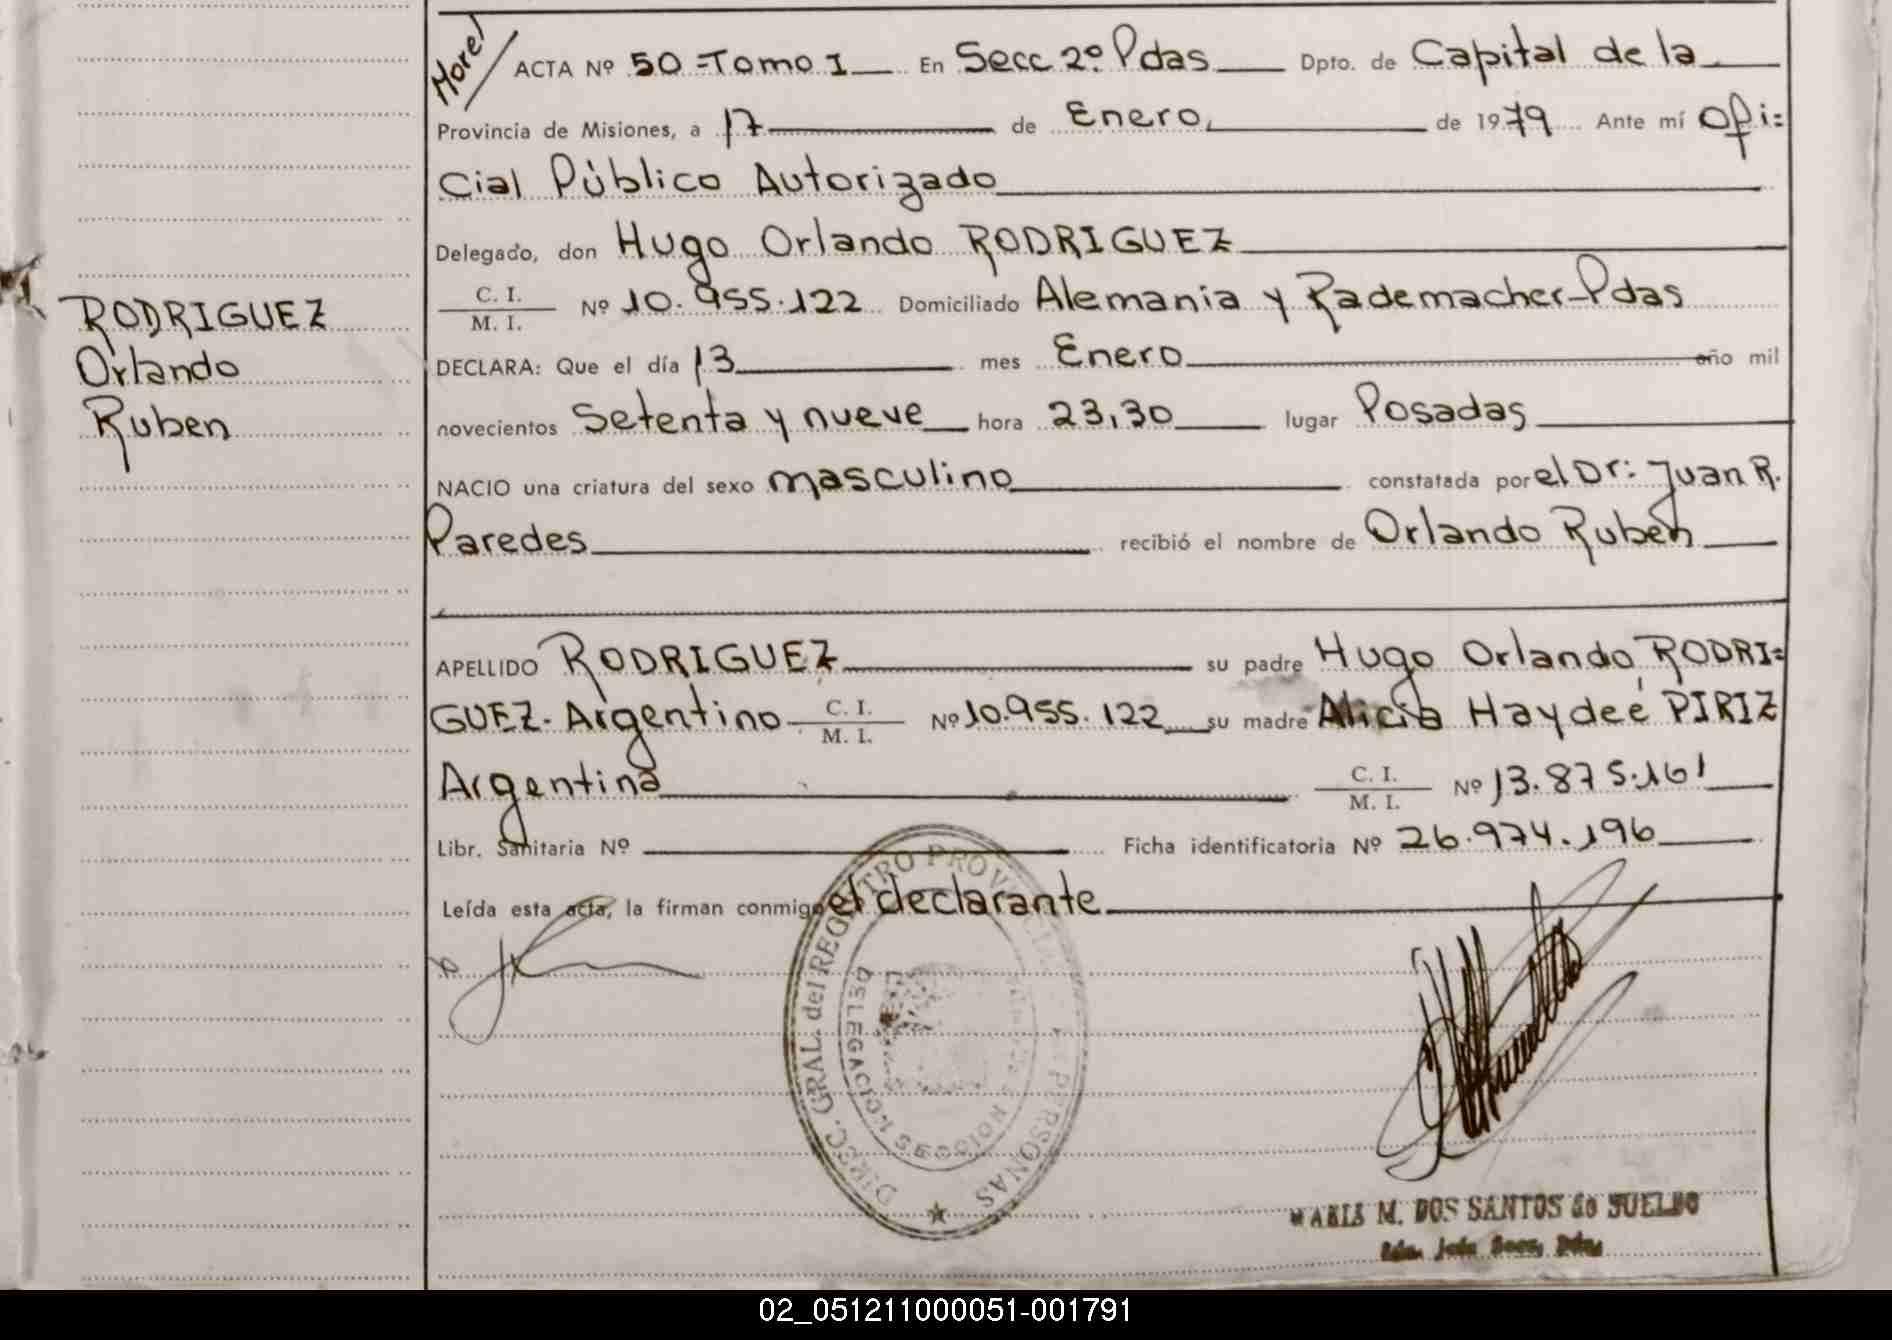 Morel
ACTA Nº 50 - Tomo I En Secc 2º Pdas Dpto. de Capital de la
Provincia de Misiones, a 17 de Enero, de 1979 Ante mí Ofi=
cial Público Autorizado
Delegado, don Hugo Orlando RODRIGUEZ
C. I.
M. I. Nº 10.955.122 Domiciliado Alemania y Rademacher-Pdas
RODRIGUEZ
Orlando
Ruben
DECLARA: Que el día 13 mes Enero año mil
novecientos Setenta y nueve hora 23,30 lugar Posadas
NACIO una criatura del sexo masculino constatada por el Dr: Juan R.
Paredes recibió el nombre de Orlando Ruben
APELLIDO RODRIGUEZ su padre Hugo Orlando RODRI=
GUEZ. Argentino C. I. M. I. Nº 10.955.122 su madre Alicia Haydeé PIRIZ
Argentina C. I. M. I. Nº 13.875.161
Libr. Sanitaria Nº Ficha identificatoria Nº 26.974.196
Leída esta acta, la firman conmigo el declarante
DIREC. GRAL. del REGISTRO PROVINCIAL PERSONAS
DELEGACION
MARIA M. DOS SANTOS de SUELDO
02_051211000051-001791